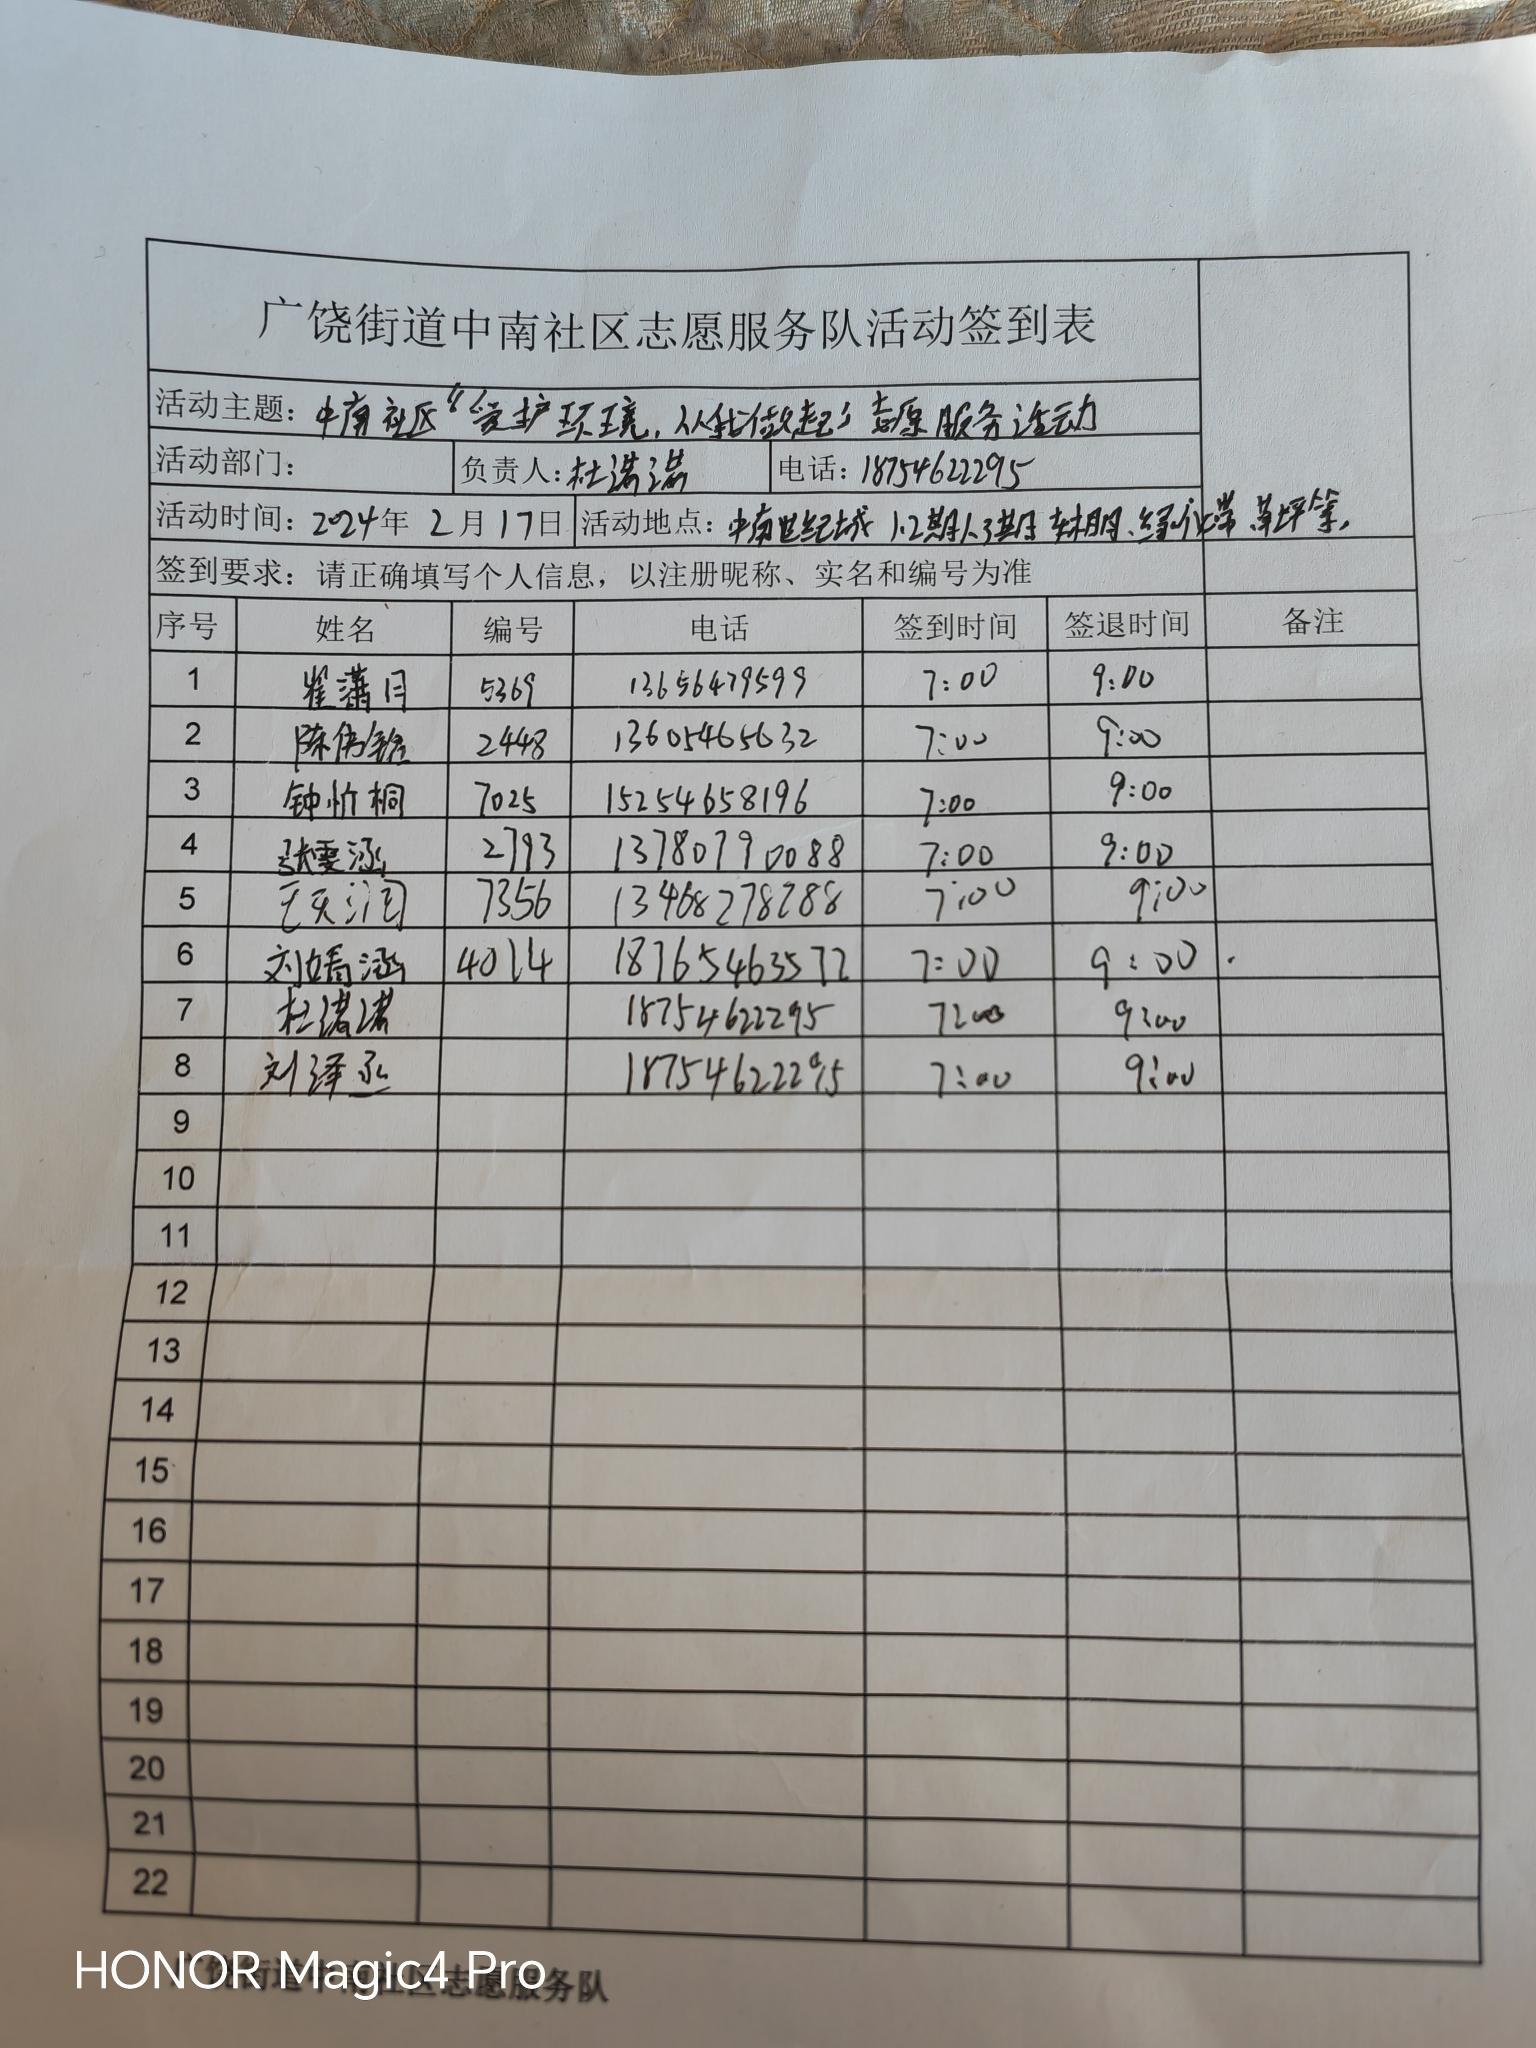 广饶街道中南社区志愿服务队活动签到表
活动主题：中南社区“爱护环境，从我做起”志愿服务活动
活动部门： 负责人：杜诺诺 电话：18754622295
活动时间：2024年2月17日 活动地点：中南世纪城 1.2期1.3期 绿化带 草坪等。
签到要求：请正确填写个人信息，以注册昵称、实名和编号为准
序号 姓名 编号 电话 签到时间 签退时间 备注
1 崔潇月 5369 13656479599 7:00 9:00
2 2448 13605465632 7:00 9:00
3 钟忻桐 7025 15254658196 7:00 9:00
4 张雯涵 2793 13780790088 7:00 9:00
5 7356 13468278288 7:00 9:00
6 刘婧涵 4014 18765463572 7:00 9:00
7 杜诺诺 18754622295 7:00 9:00
8 刘泽丞 18754622295 7:00 9:00
9
10
11
12
13
14
15
16
17
18
19
20
21
22
广饶街道中南社区志愿服务队
HONOR Magic4 Pro